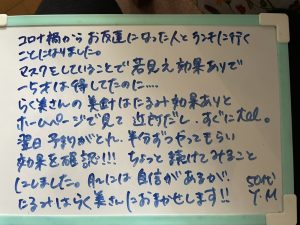 コロナ禍からお友達になった人とランチに行く
ことになりました。
マスクをしていることで若見え効果ありで
－5才は得してたのに…。
らく美さんの美針はたるみ効果ありと
ホームページで見て 近所だし、すぐにtel。
翌日予約がとれ、半分ずつやってもらい
効果を確認!!! ちょっと続けてみること
にしました。肌には自信があるが、
たるみはらく美さんにおまかせします!!
50代
Y.M